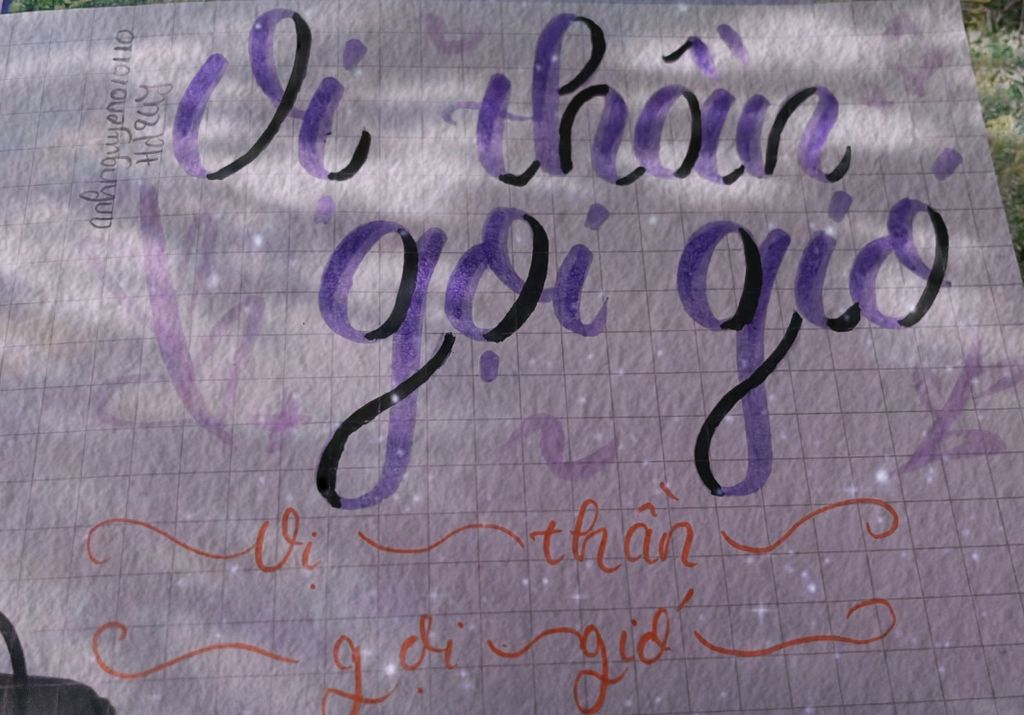 anhnguyen010110
Vị thần
gọi gió
Vị thần
gọi gió